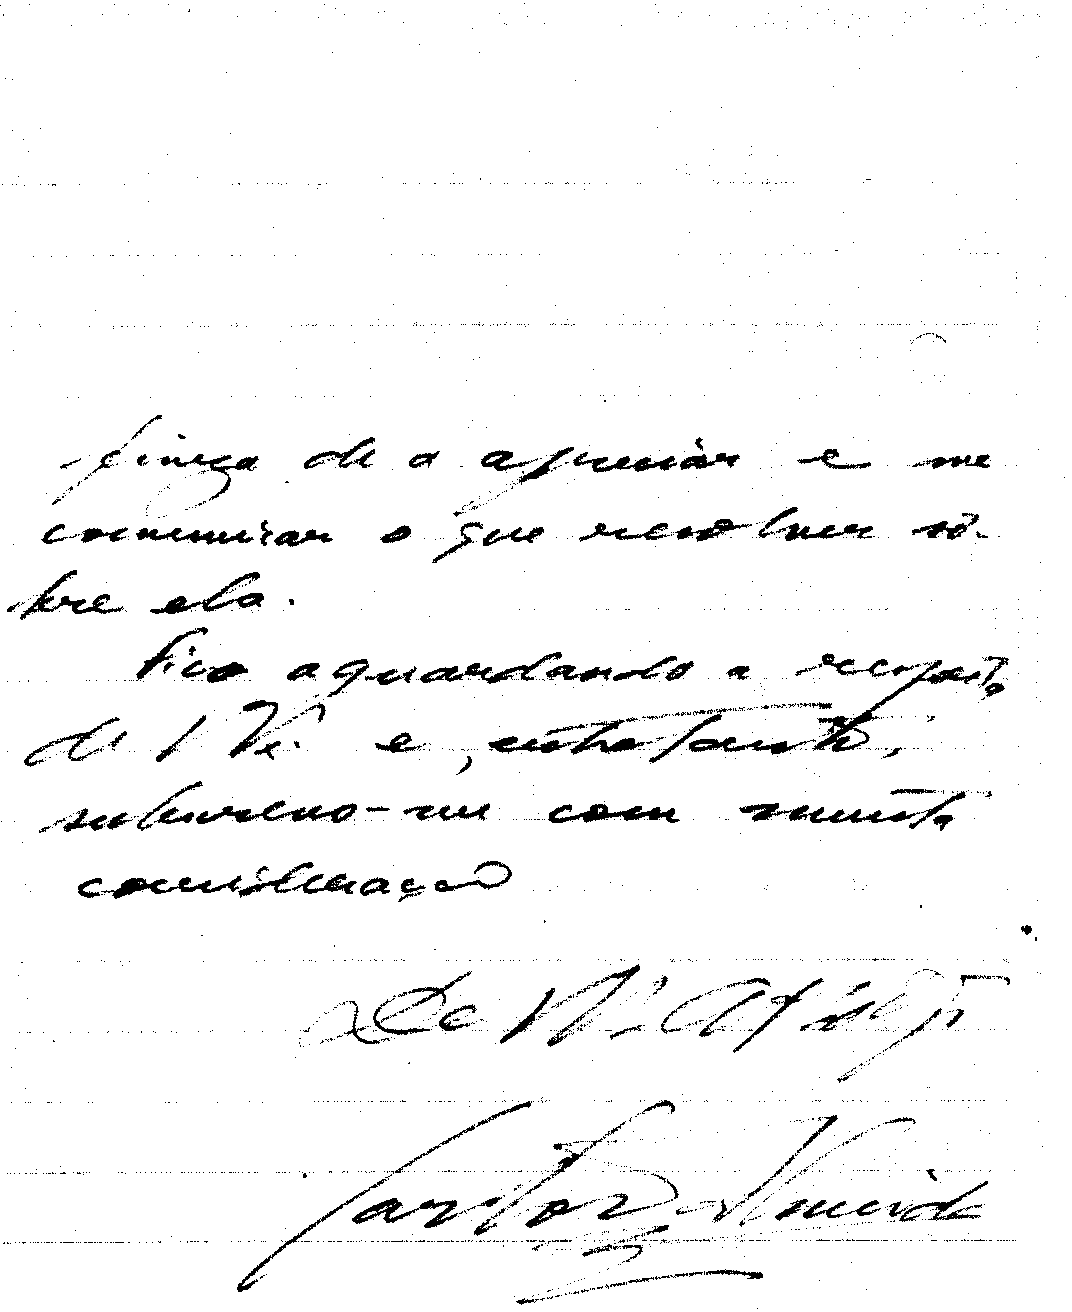 fineza de a apreciar e me
comunicar o que resolver sô-
bre ela.
Fico aguardando a resposta
de V. e, entretanto,
subscrevo-me com muita
consideração
De V.
Almeida